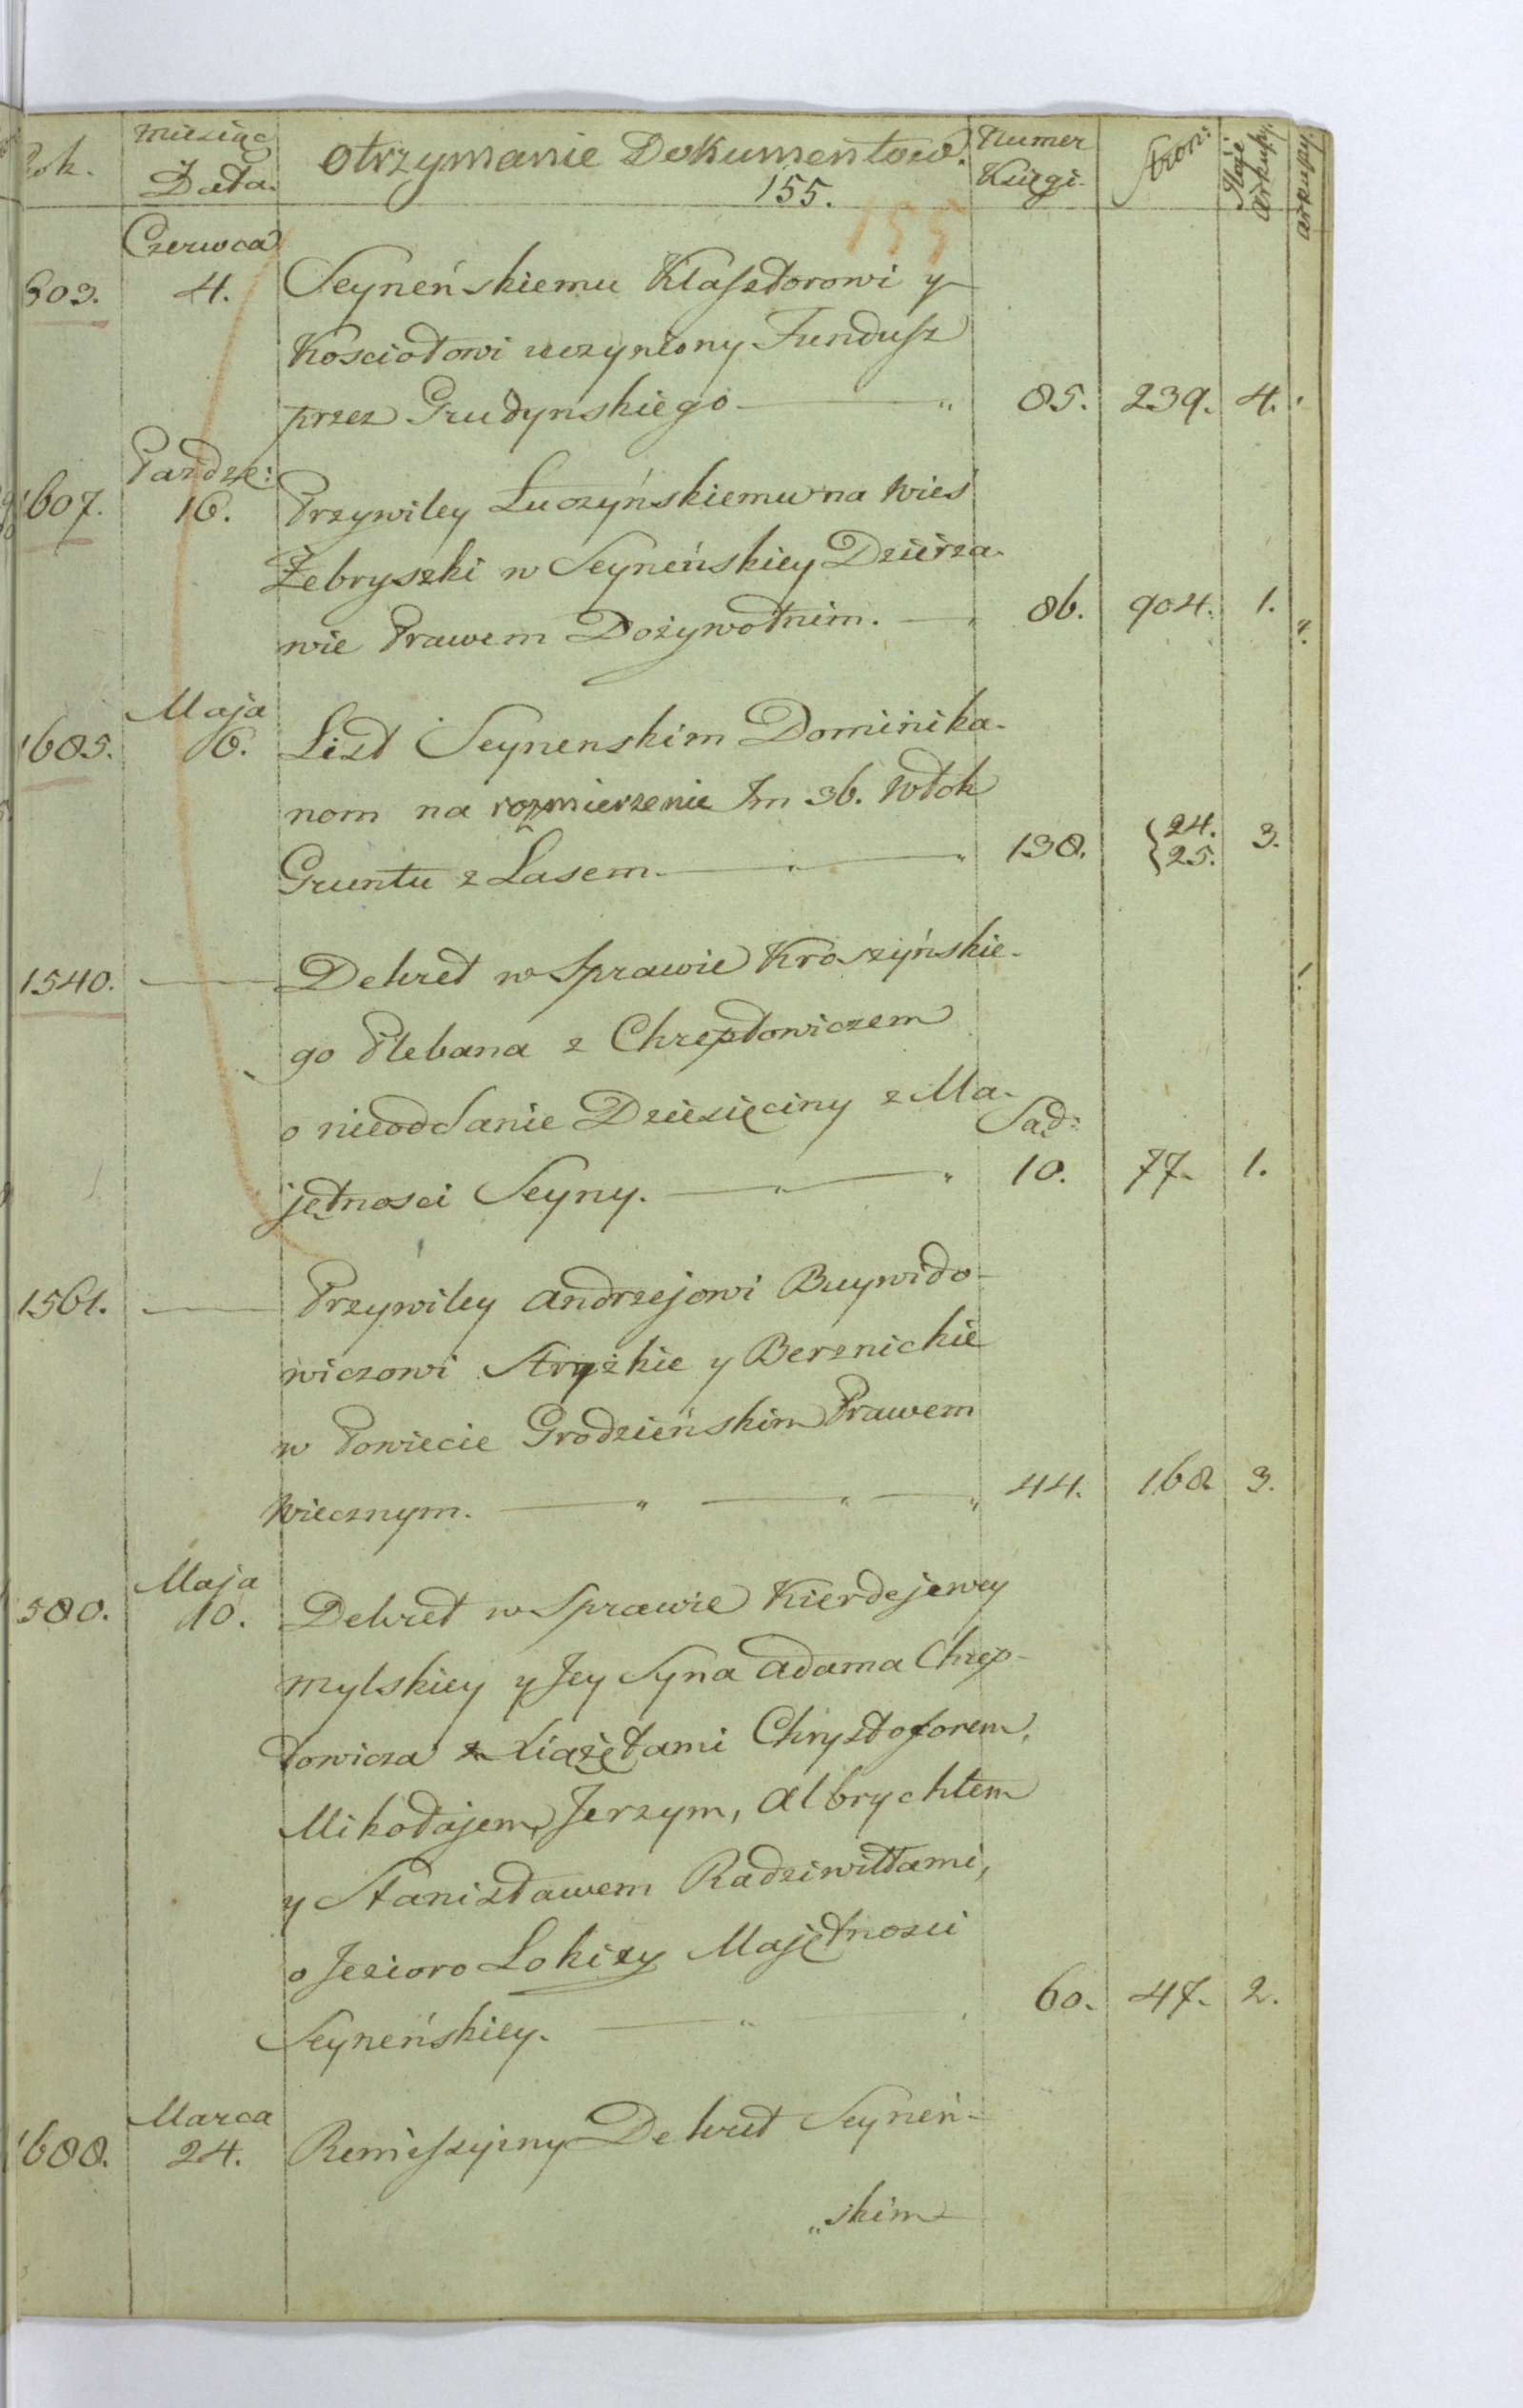 Rok. Miesiąc Data. Otrzymanie Dokumentow. Numer Księgi. Stron: Maje arkuszy. arkuszy.
155.
155
Czerwca
603. 4. Seyneńskiemu Klasztorowi y
Kosciołowi uczyniony Fundusz
przez Grudynskiego 85. 239. 4.
Paździe:
1607. 16. Przywiley Luczyńskiemu na Wieś
Żebryszki w Seyneńskiey Dzierża-
wie Prawem Dożywotnim. 86. 904. 1.
Maja
1685. 6. List Seynenskim Dominika-
nom na rozmierzenie Im 36. Włok
Gruntu z Lasem. 138. {24. 25. 3.
1540. Dekret w Sprawie Kroszyńskie-
go Plebana z Chreptowiczem
o nieoddanie Dziesięciny z Ma-
jętnosci Seyny. Sąd: 10. 77. 1.
1561. Przywiley Andrzejowi Buywido-
wiczowi Stryżkie y Berznickie
w Powiecie Grodzieńskim Prawem
Wiecznym. 44. 168. 3.
Maja
580. 10. Dekret w Sprawie Kierdejewey
Mylskiey y Jey Syna Adama Chrep-
towicza z Xiążętami Chrysztoforem,
Mikołajem, Jerzym, Albrychtem
y Stanisławem Radziwiłłami,
o Jezioro Lokisty Majętnosci
Seyneńskiey. 60. 47. 2.
Marca
1688. 24. Remissyiny Dekret Seyneń-
„skim